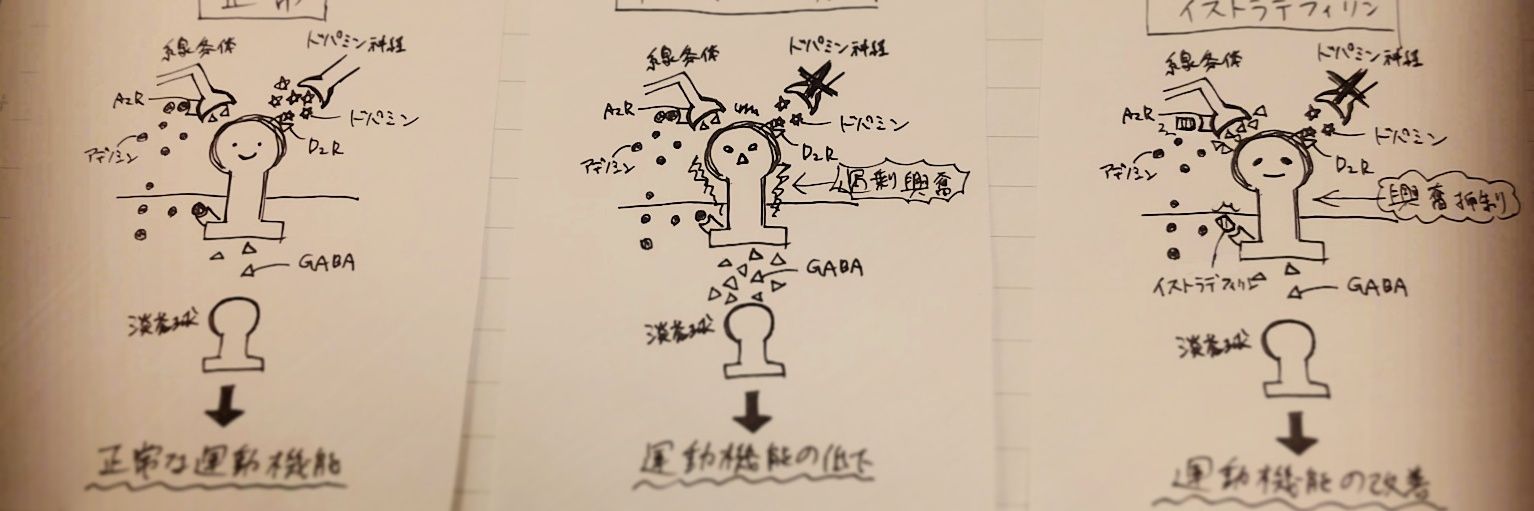 正常
線条体
ドパミン神経
A2R
ドパミン
アデノシン
D2R
GABA
淡蒼球
正常な運動機能
線条体
ドパミン神経
A2R
ドパミン
アデノシン
D2R
過剰興奮
GABA
淡蒼球
運動機能の低下
イストラデフィリン
線条体
ドパミン神経
A2R
ドパミン
アデノシン
D2R
興奮抑制
イストラデフィリン
GABA
淡蒼球
運動機能の改善